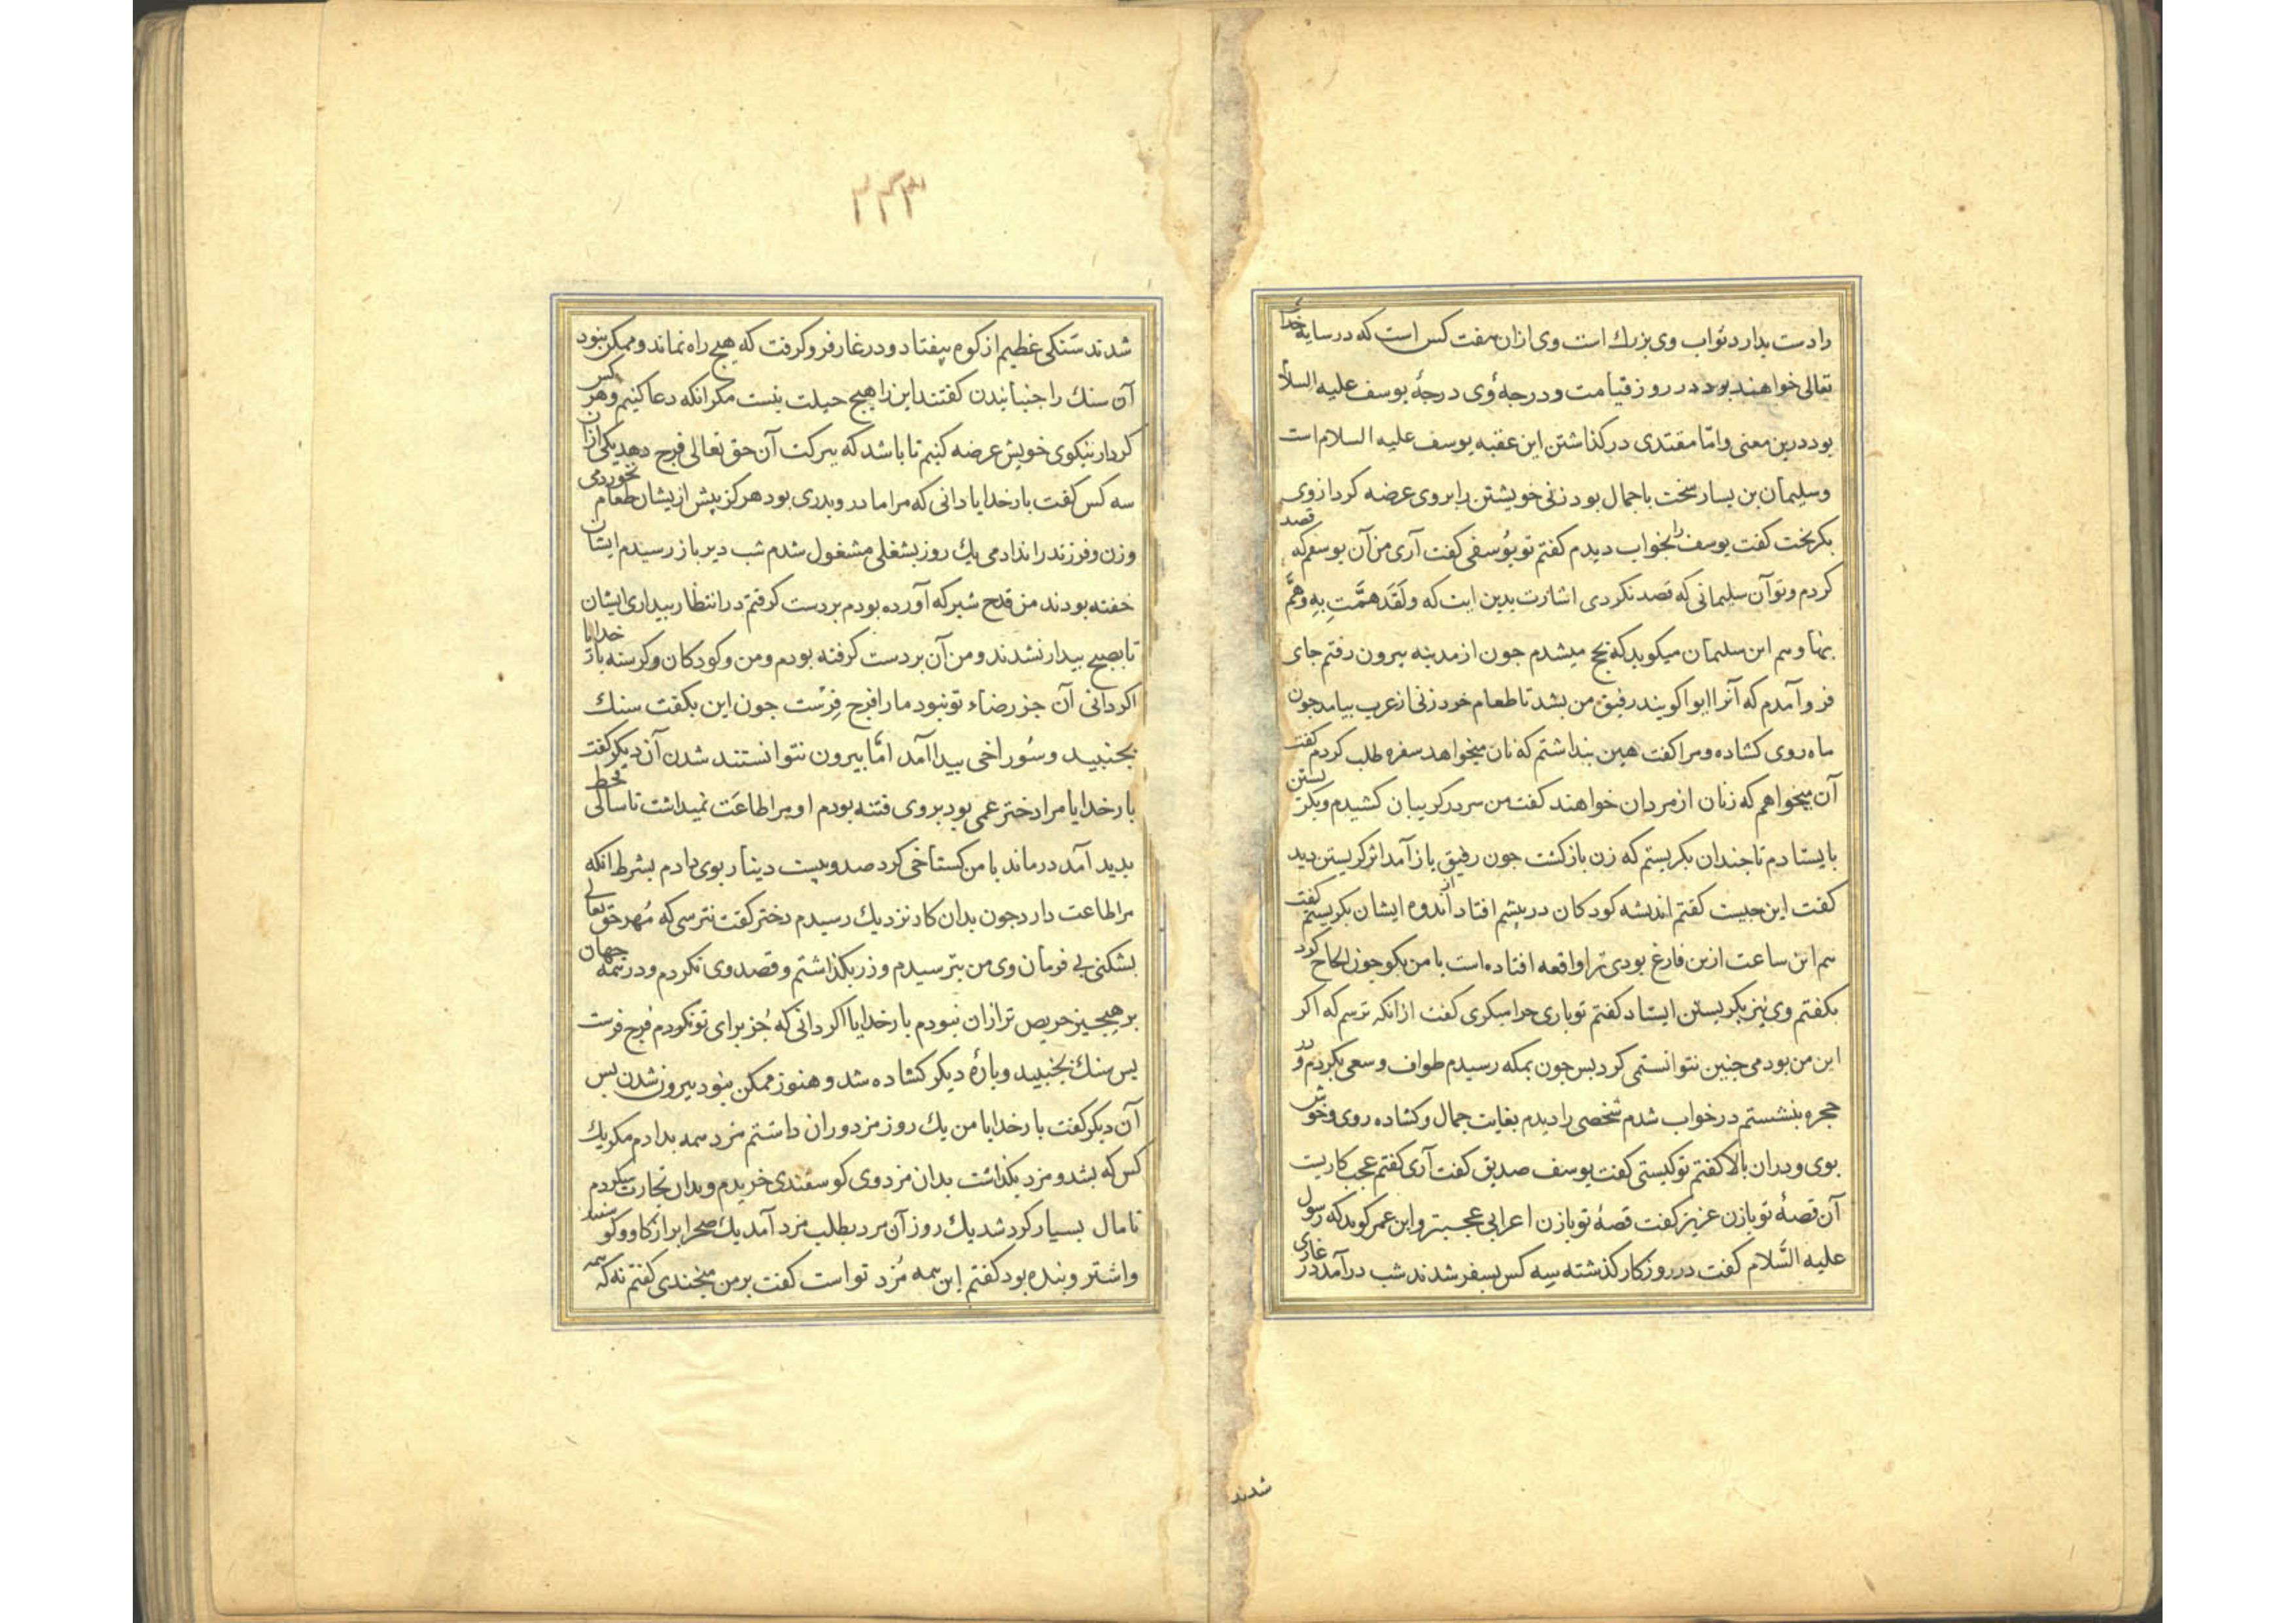 را دست بدارد ثواب وی بزرك است وی ازان هفت كس است كه در سایهٔ خدا
تعالی خواهند بود در روز قیامت و درجهٔ وی درجهٔ یوسف علیه السلام
بود درین معنی و امّا مقتدی در كذاشتن این عقبه یوسف علیه السلام است
و سلیمان بن یسار سخت با جمال بود زنی خویشتن را بروی عرضه كرد از وی
بكریخت كفت یوسف را بخواب دیدم كفتم تو یُوسفی كفت آری من آن یوسفم كه قصد
كردم و تو آن سلیمانی كه قصد نكردی اشارت بدین ایت كه وَلَقَد هَمَّتِ بِهِ وَهَمَّ
بِهَا و هم این سلیمان میكوید كه بحج میشدم جون از مدینه بیرون رفتم جای
فرو آمدم كه آنرا ابوا كویند رفیق من بشد تا طعام خرد زنی از عرب بیامد جون
ماه روی كشاده و مرا كفت هین بنداشتم كه نان میخواهد سفره طلب كردم كفت
آن میخواهم كه زنان از مردان خواهند كفت من سر در كریبان كشیدم و بكریستن
بایستادم تا جندان بكریستم كه زن بازكشت جون رفیق باز آمد اثر كریستن دید
كفت این جیست كفتم اندیشه كودكان در بیشم افتاد از اندوه ایشان بكریستم كفت
هم این ساعت ازین فارغ بودی ترا واقعه افتاده است با من بكو جون الحاح كرد
بكفتم وی نیز بكریستن ایستاد كفتم تو باری جرا میكری كفت ازانكه ترسم كه اكر
این من بودمی جنین نتوانستمی كرد بس جون بمكه رسیدم طواف و سعی بكردم و در
حجره بنشستم در خواب شدم شخصی را دیدم بغایت جمال و كشاده روی و خوش
بوی و دران بالا كفتم تو كیستی كفت یوسف صدیق كفت آری كفتم عجب كاریست
آن قصهٔ تو با زن عزیز كفت قصهٔ تو با زن اعرابی عجبتر و ابن عمر كوید كه رسول
علیه السَّلام كفت در روزكار كذشته سه كس بسفر شدند شب درآمد در غاری
شدند
۲۴۳
شدند سَنكی عظیم از كوه بیفتاد و در غار فرو كرفت كه هیج راه نماند و ممكن نبود
آن سنك را جنبانیدن كفتند این را هیج حیلت نیست مكر انكه دعا كنیم و هر كس
كردار نیكوی خویش عرضه كنیم تا باشد كه ببركت آن حق تعالی فرج دهد یكی ازان
سه كس كفت بار خدایا دانی كه مرا مادر و بدری بود هركز بیش ازیشان طعام نخوردمی
و زن و فرزند را ندادمی یك روز بشغلی مشغول شدم شب دیر باز رسیدم ایشان
خفته بودند من قدح شیر كه آورده بودم بر دست كرفتم در انتظار بیداری ایشان
تا بصبح بیدار نشدند و من آن بر دست كرفته بودم و من و كودكان و كرسنه بار خدایا
اكر دانی آن جز رضاء تو نبود ما را فرج فِرَست جون این بكفت سنك
بجنبید و سُوراخی بیدا آمد امّا بیرون نتوانستند شدن آن دیكر كفت
بار خدایا مرا دختر عمی بود بر وی فتنه بودم او مرا طاعَت نمیداشت تا سالی قحط
بدید آمد درماند با من كستاخی كرد صد و بیست دینار بوی دادم بشرط انكه
مرا طاعت دارد جون بدان كار نزدیك رسیدم دختر كفت نترسی كه مُهر حق تعالی
بشكنی بی فرمان وی من بترسیدم و زر بكذاشتم و قصد وی نكردم و در همه جهان
بر هیج جیز حریص تر ازان نبودم بار خدایا اكر دانی كه جُز برای تو نكردم فرج فرست
بس سنك بجنبید و بارهٔ دیكر كشاده شد و هنوز ممكن نبود بیرون شدن بس
آن دیكر كفت بار خدایا من یك روز مزدوران داشتم مزد همه بدادم مكر یك
كس كه بشد و مزد بكذاشت بدان مزد وی كوسفندی خریدم و بدان تجارت میكردم
تا مال بسیار كرد شد یك روز آن مرد بطلب مزد آمد یك صحرا بر از كاو و كوسفند
و اشتر و بنده بود كفتم این همه مُزد تو است كفت بر من میخندی كفتم نه كه همه